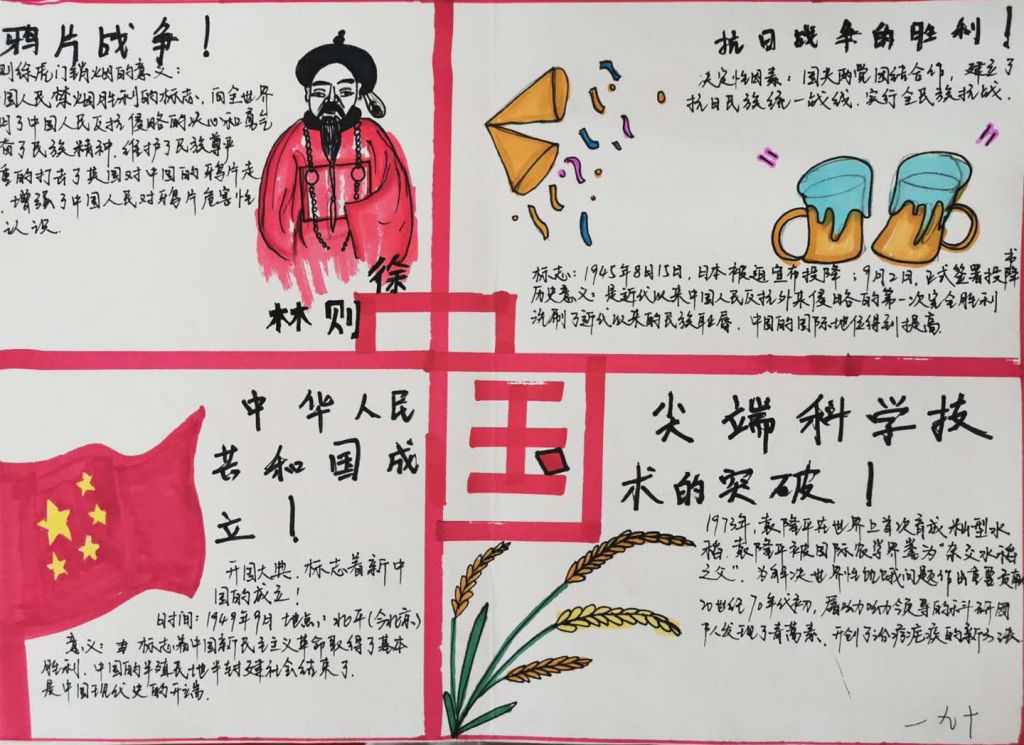 鸦片战争！
则徐虎门销烟的意义：
国人民禁烟胜利的标志，向全世界
了中国人民反抗侵略的决心和勇气
奋了民族精神，维护了民族尊严
重的打击了英国对中国的鸦片走
，增强了中国人民对鸦片危害性
认识.
林则徐
抗日战争的胜利！
决定性因素：国共两党团结合作，建立了
抗日民族统一战线，实行全民族抗战.
标志：1945年8月15日，日本被迫宣布投降；9月2日，正式签署投降书
历史意义：是近代以来中国人民反抗外来侵略的第一次完全胜利
洗刷了近代以来的民族耻辱，中国的国际地位得到提高.
中国
中华人民
共和国成
立！
开国大典，标志着新中
国的成立！
时间：1949年9月 地点：北平(今北京)
意义：标志着中国新民主主义革命取得了基本
胜利，中国的半殖民地半封建社会结束了.
是中国现代史的开端.
尖端科学技
术的突破！
1973年，袁隆平在世界上首次育成籼型水
稻.袁隆平被国际农学界誉为"杂交水稻
之父".为解决世界性饥饿问题作出重要贡献
20世纪70年代初，屠呦呦领导的科研团
队发现了青蒿素，开创了治疗疟疾的新方法
一九十